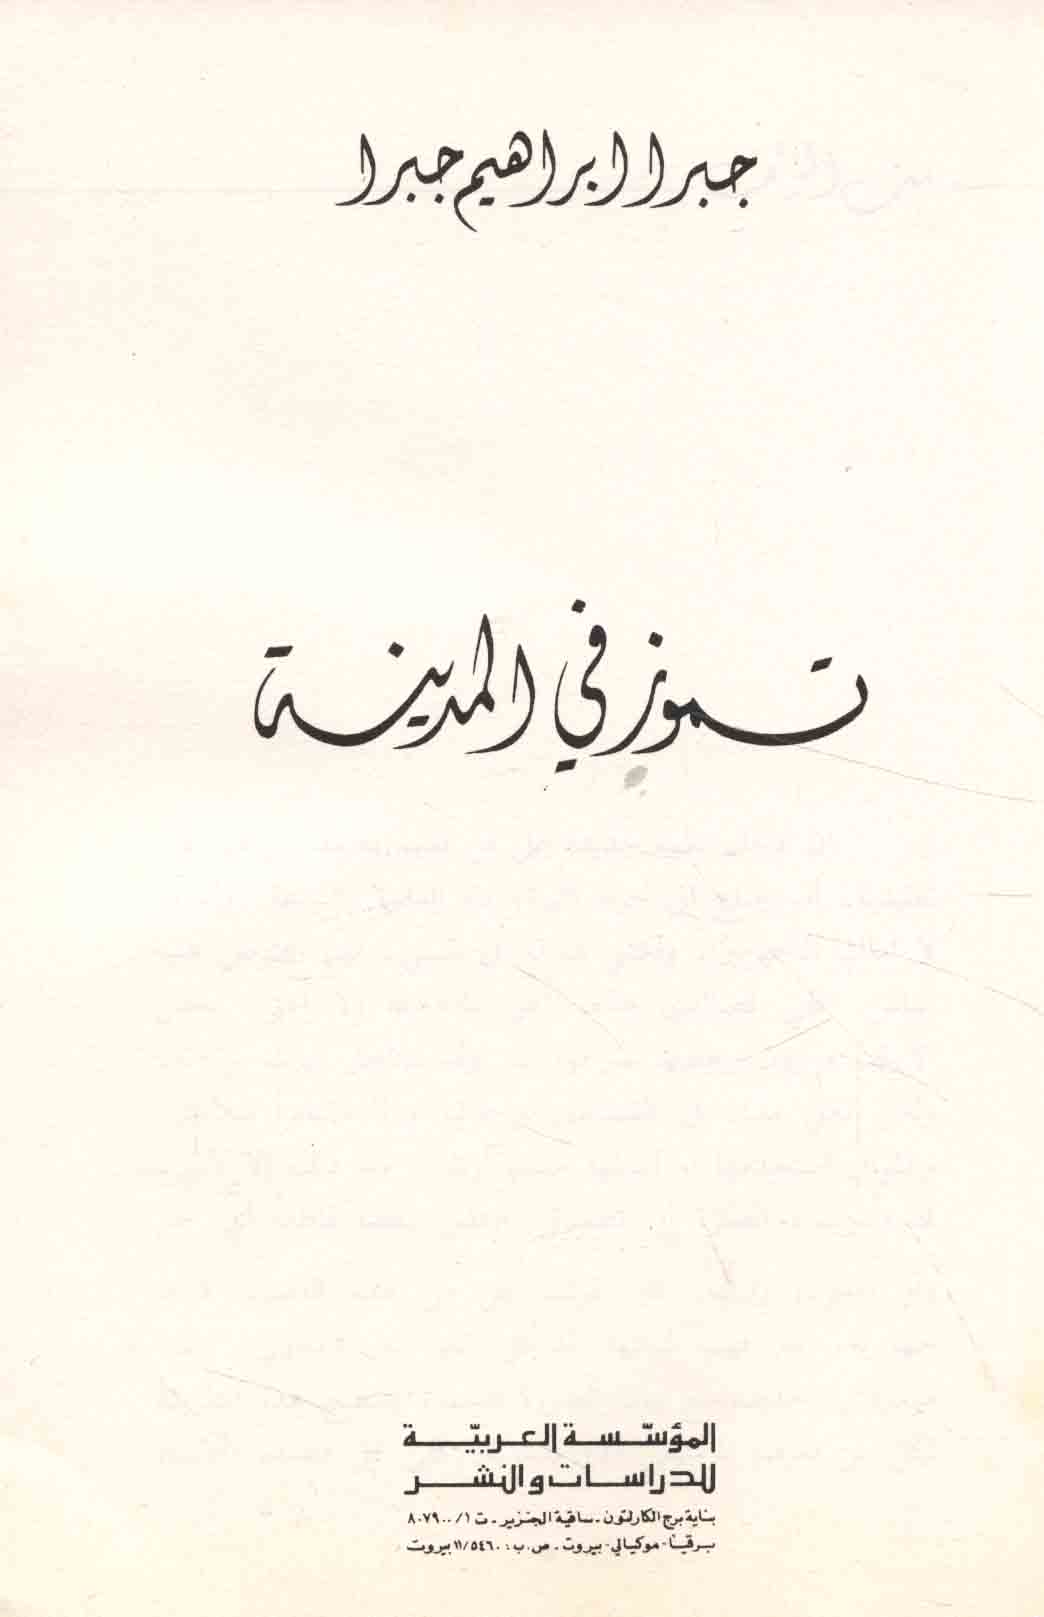 جبرا ابراهيم جبرا
تموز في المدينة
المؤسّسة العربيّة
للدراسات والنشر
بناية برج الكارلتون - ساقية الجنزير - ت ٨٠٧٩٠٠/١
برقيا - موكيالي - بيروت - ص.ب: ١١/٥٤٦٠ بيروت